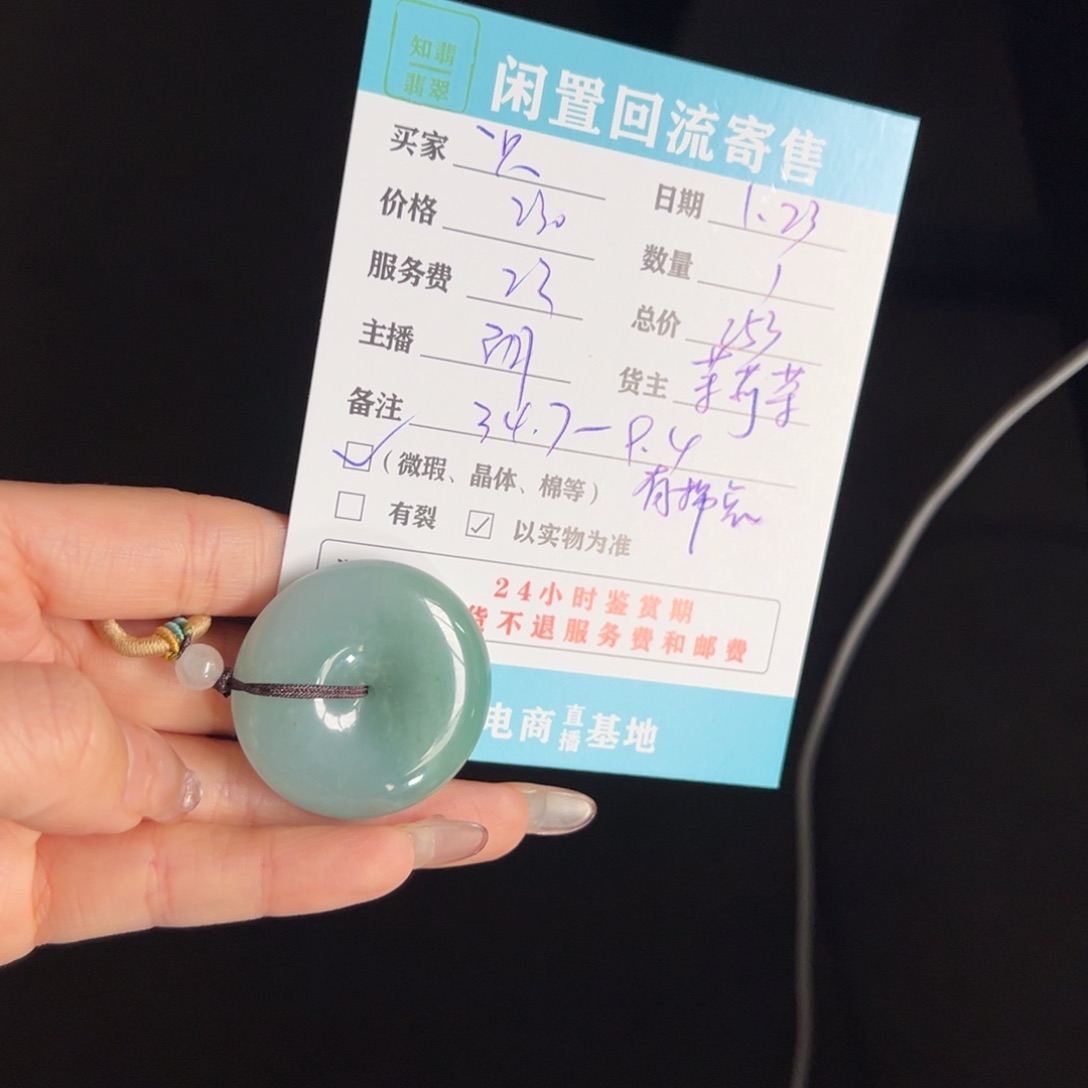 知翡
翡翠
闲置回流寄售
买家
日期 1.23
价格 230
数量 1
服务费 23
总价 253
主播
货主 茉莉茶
备注 34.7-9.4
(微瑕、晶体、棉等) 有掉点
有裂 以实物为准
24小时鉴赏期
货不退服务费和邮费
电商直播基地